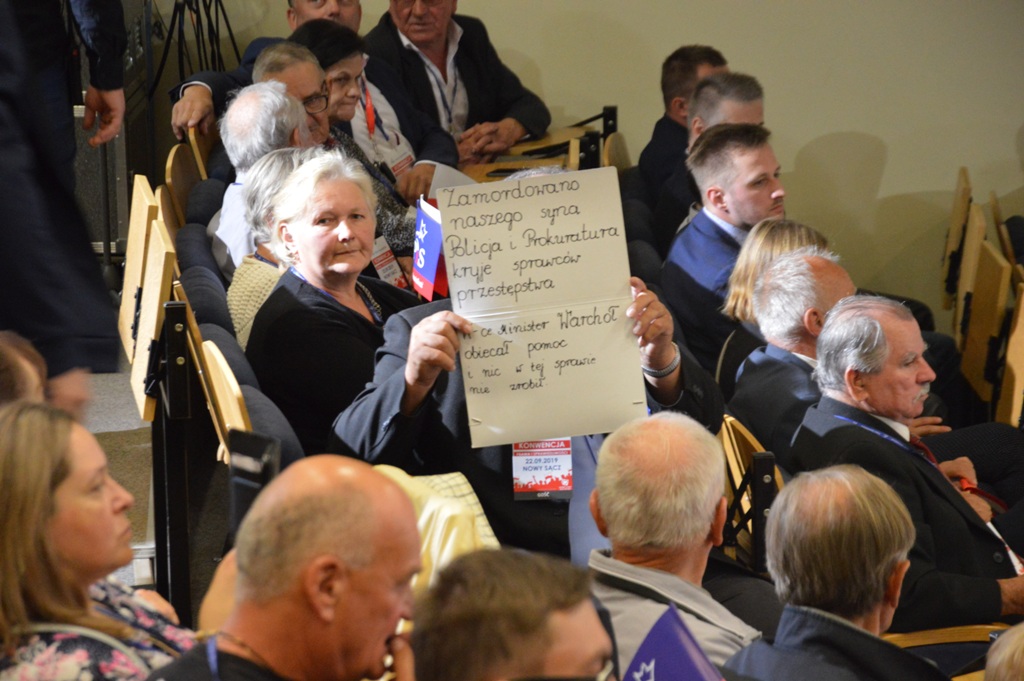 Zamordowano
naszego syna
Policja i Prokuratura
kryje sprawców
przestępstwa
W ce Minister Warchoł
obiecał pomoc
i nic w tej sprawie
nie zrobił.
KONWENCJA
22.09.2019
NOWY SĄCZ